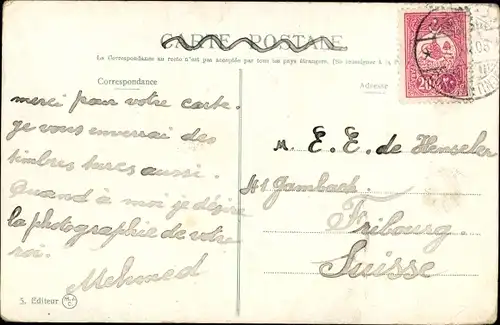 CARTE POSTALE
La Correspondance au recto n'est pas acceptée par tous les pays étrangers. (Se renseigner à la
Correspondance
Adresse
merci pour votre carte.
je vous enverrai des
timbres turcs aussi.
Quand à moi je désire
la photographie de votre
roi.
Mehmed
M. E. E. de Henseler
41 Gambach.
Fribourg.
Suisse
20
3. Editeur